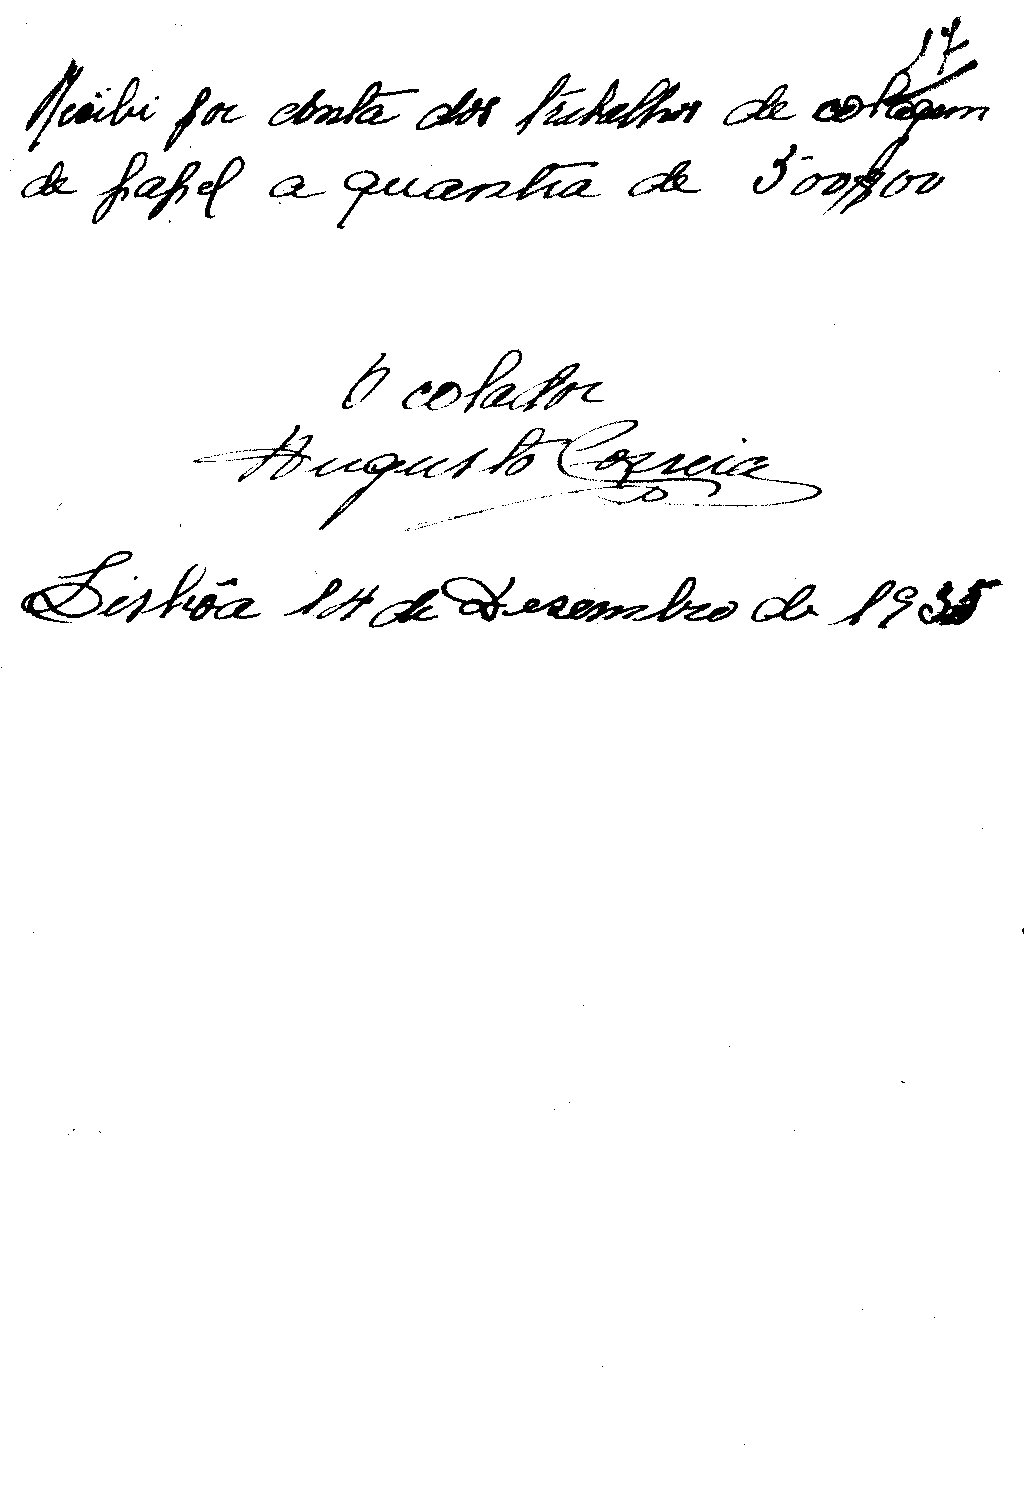 17
Recibi por conta dos trabalhos de colagem
de papel a quantia de 500$00
O colador
Augusto Correia
Lisbôa 14 de Desembro de 1935